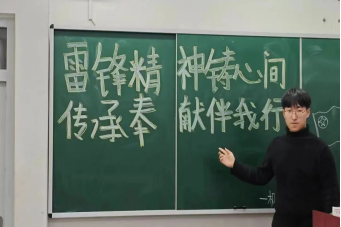 雷锋精神铸心间
传承奉献伴我行